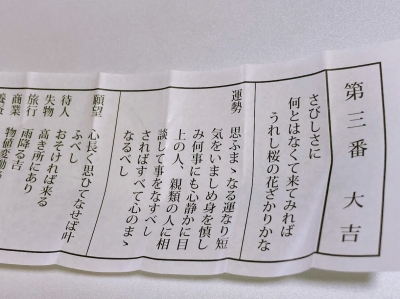 第三番 大吉
さびしさに
何とはなくて来てみれば
うれし桜の花ざかりかな
運勢 思ふまゝなる運なり短
気をいましめ身を慎し
み何事にも心静かに目
上の人、親類の人に相
談して事をなすべし
さればすべて心のまゝ
なるべし
願望 心長く思ひてなせば叶
ふべし
待人 おそければ来る
失物 高き所にあり
旅行 雨降る吉
商業 物値変動